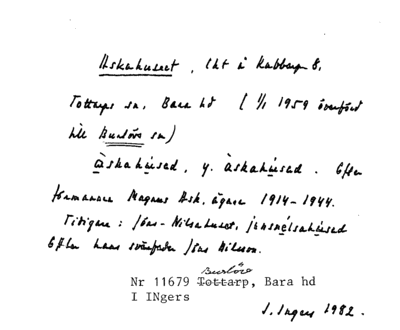 Askahuset, lht å Kabbarp 8,
Tottarps sn, Bara hd (1/1 1959 överförd
till Burlövs sn)
àskahùsəd, y. àskahùsəd. Efter
förmannen Magnus Ask, ägare 1914-1944.
Tidigare: Jöns-Nilsahuset, jönsnélsahùsəd
Efter hans svärfader Jöns Nilsson.
Burlöv
Nr 11679 Tottarp, Bara hd
I INgers
I. Ingers 1982.